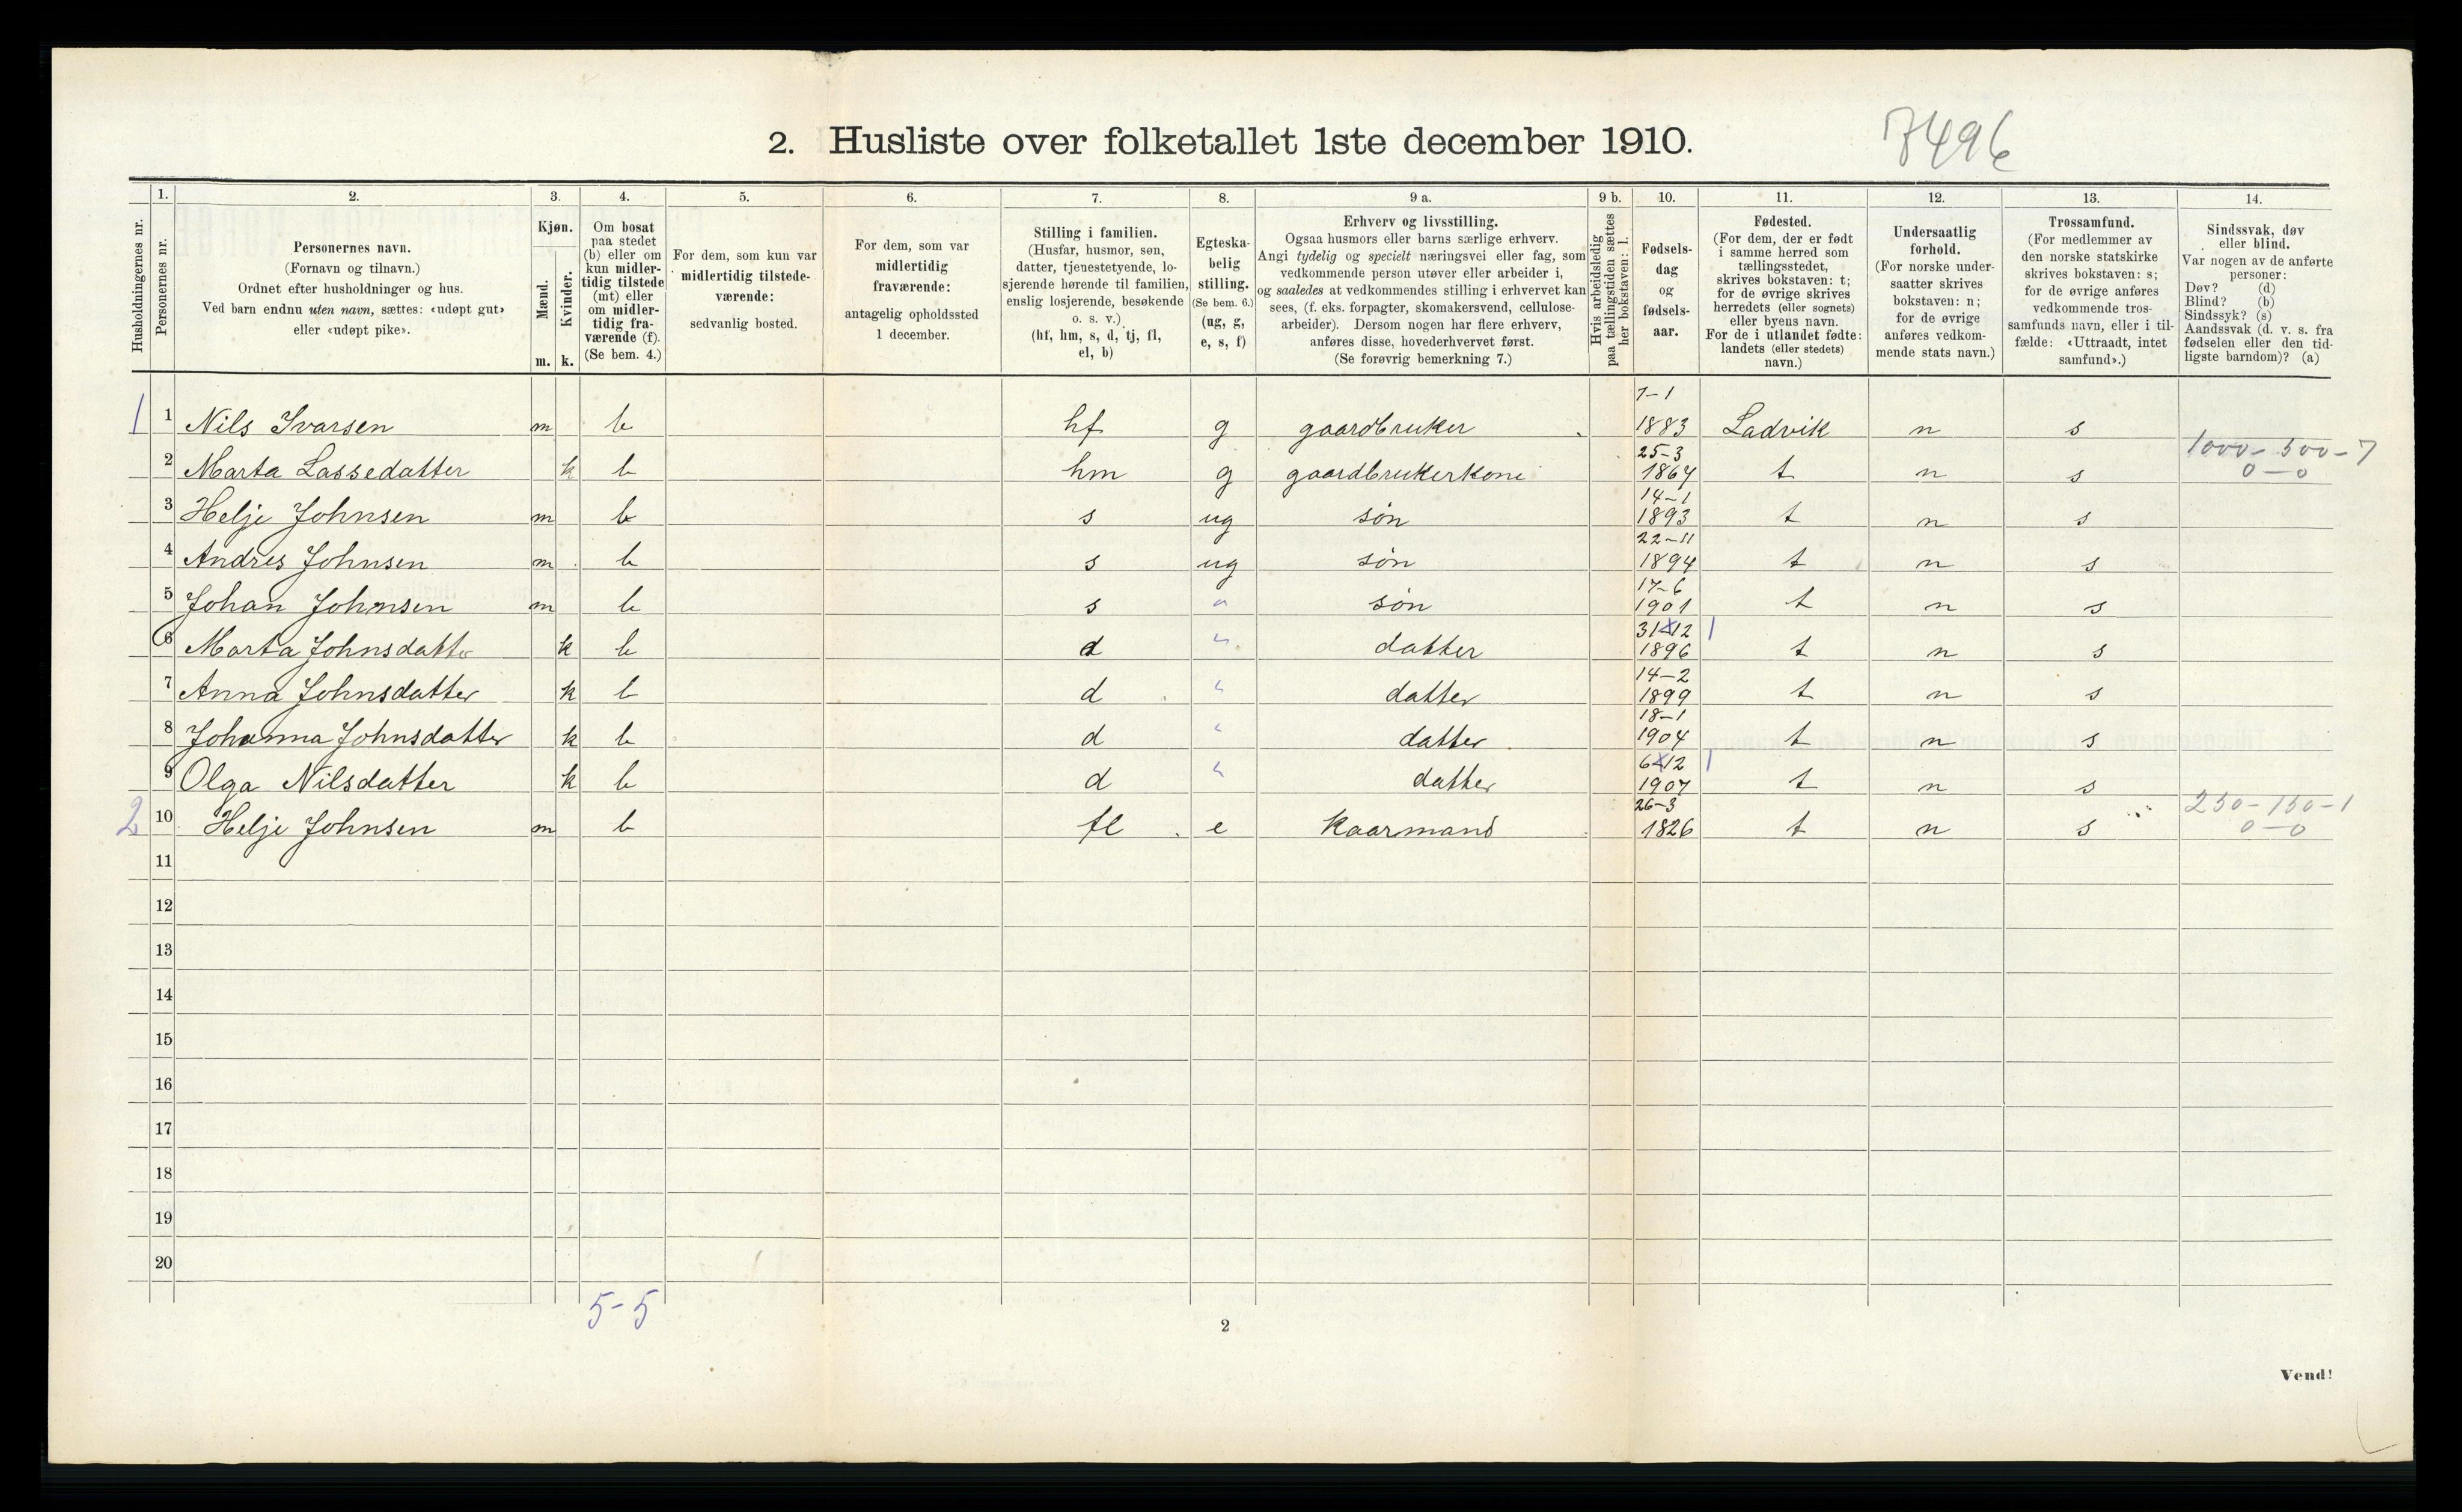 2. Husliste over folketallet 1ste december 1910.
7496
1. 2. 3. 4. 5. 6. 7. 8. 9 a. 9 b. 10. 11. 12. 13. 14.
Husholdningernes nr.
Personernes nr.
Personernes navn.
(Fornavn og tilnavn.)
Ordnet efter husholdninger og hus.
Ved barn endnu uten navn, sættes: «udøpt gut»
eller «udøpt pike».
Kjøn.
Mænd.
Kvinder.
m. k.
Om bosat
paa stedet
(b) eller om
kun midler-
tidig tilstede
(mt) eller
om midler-
tidig fra-
værende (f).
(Se bem. 4.)
For dem, som kun var
midlertidig tilstede-
værende:
sedvanlig bosted.
For dem, som var
midlertidig
fraværende:
antagelig opholdssted
1 december.
Stilling i familien.
(Husfar, husmor, søn,
datter, tjenestetyende, lo-
sjerende hørende til familien,
enslig losjerende, besøkende
o. s. v.)
(hf, hm, s, d, tj, fl,
el, b)
Egteska-
belig
stilling.
(Se bem. 6.)
(ug, g,
e, s, f)
Erhverv og livsstilling.
Ogsaa husmors eller barns særlige erhverv.
Angi tydelig og specielt næringsvei eller fag, som
vedkommende person utøver eller arbeider i,
og saaledes at vedkommendes stilling i erhvervet kan
sees, (f. eks. forpagter, skomakersvend, cellulose-
arbeider). Dersom nogen har flere erhverv,
anføres disse, hovederhvervet først.
(Se forøvrig bemerkning 7.)
Hvis arbeidsledig
paa tællingstiden sættes
her bokstaven: l.
Fødsels-
dag
og
fødsels-
aar.
Fødested.
(For dem, der er født
i samme herred som
tællingsstedet,
skrives bokstaven: t;
for de øvrige skrives
herredets (eller sognets)
eller byens navn.
For de i utlandet fødte:
landets (eller stedets)
navn.)
Undersaatlig
forhold.
(For norske under-
saatter skrives
bokstaven: n;
for de øvrige
anføres vedkom-
mende stats navn.)
Trossamfund.
(For medlemmer av
den norske statskirke
skrives bokstaven: s;
for de øvrige anføres
vedkommende tros-
samfunds navn, eller i til-
fælde: «Uttraadt, intet
samfund».)
Sindssvak, døv
eller blind.
Var nogen av de anførte
personer:
Døv? (d)
Blind? (b)
Sindssyk? (s)
Aandssvak (d. v. s. fra
fødselen eller den tid-
ligste barndom)? (a)
7-1
1 1 Nils Ivarsen m b hf g gaardbruker 1883 Ladvik n s
25-3 1000-500-7
2 Marta Lassedatter k b hm g gaardbrukerkone 1867 t n s 0-0
14-1
3 Helje Johnsen m b s ug søn 1893 t n s
22-11
4 Andres Johnsen m b s ug søn 1894 t n s
17-6
5 Johan Johnsen m b s " søn 1901 t n s
31-12 1
6 Marta Johnsdatter k b d " datter 1896 t n s
14-2
7 Anna Johnsdatter k b d " datter 1899 t n s
18-1
8 Johanna Johnsdatter k b d " datter 1904 t n s
6-12 1
9 Olga Nilsdatter k b d " datter 1907 t n s
26-3 250-150-1
2 10 Helje Johnsen m b fl e Kaarmand 1826 t n s 0-0
11
12
13
14
15
16
17
18
19
20
5-5
2
Vend!